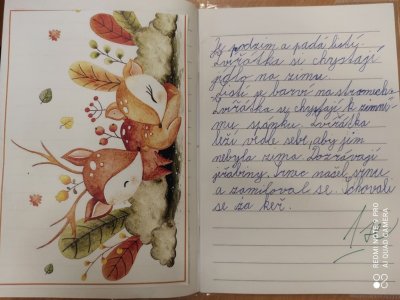 Je podzim a padá listí.
Zvířátka si chystají
jídlo na zimu.
Listí je barví na stromech.
Zvířátka se chystají k zimní-
mu spánku. Zvířátka
leží vedle sebe, aby jim
nebyla zima. Dozrávají
jeřabiny. Srnec našel srnu
a zamiloval se. Schovali
se za keř.
REDMI NOTE 9 PRO
AI QUAD CAMERA